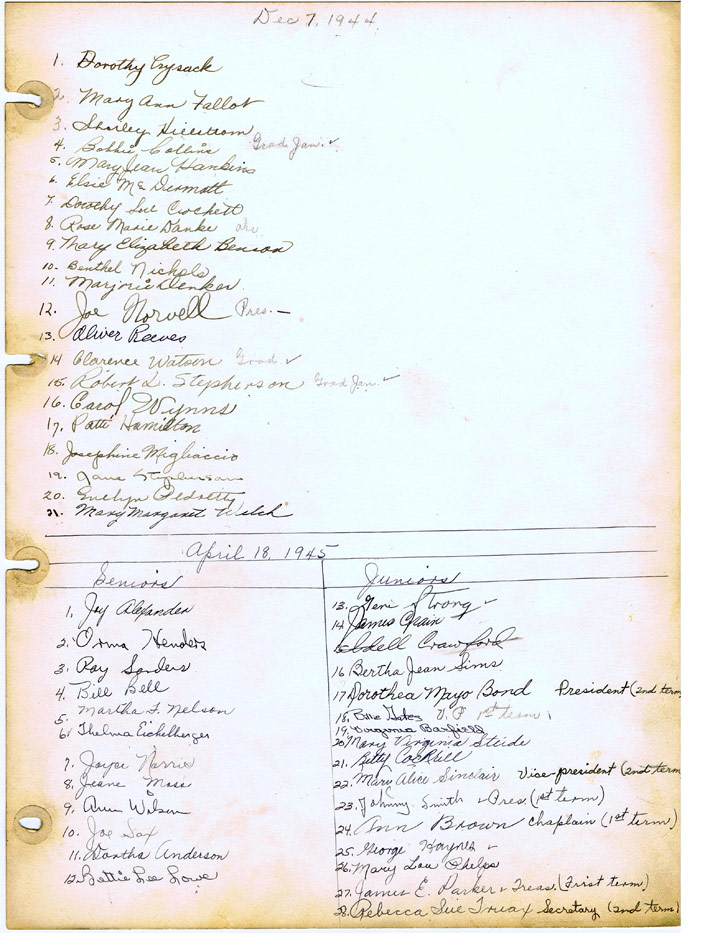 Dec 7, 1944
1. Dorothy Crysack
2. Mary Ann Fallot
3. Shirley Hillstrom
4. Bobbie Collins Grad Jan. ✓
5. Mary Jean Hankins
6. Elsie McDermott
7. Dorothy Sue Crockett
8. Rose Marie Danke
9. Mary Elizabeth Benson
10. Benthel Nichols
11. Marjorie Denker
12. Joe Norvell Pres. —
13. Oliver Reeves
14 Clarence Watson Grad ✓
15. Robert L. Stephenson Grad Jan. ✓
16. Carol Wynns
17. Patti Hamilton
18. Josephine Migliaccio
19. Jane Stephenson
20. Evelyn Pedretty
21. Mary Margaret Welch
April 18, 1945
Seniors
1. Joy Alexander
2. Orma Henders
3. Ray Sanders
4. Bill Bell
5. Martha F. Nelson
6. Thelma Eichelberger
7. Joyce Norris
8. Jeane Moss
9. Ann Wilson
10. Joe Sax
11. Wortha Anderson
12. Bettie Lee Lowe
Juniors
13. Geri Strong
14. James Crain
15 Idell Crawford
16 Bertha Jean Sims
17 Dorothea Mayo Bond President (2nd term
18. Gates V.P 1st term
19. Virginia Barfield
20 Mary Virginia Steide
21. Betty Cockrill
22. Mary Alice Sinclair Vice-president (2nd term
23. Johnny Smith Pres. (1st term)
24. Ann Brown Chaplain (1st term)
25. George Haynes
26. Mary Lou Phelps
27. James E. Parker Treas. (First term)
28. Rebecca Sue Truax Secretary (2nd term)